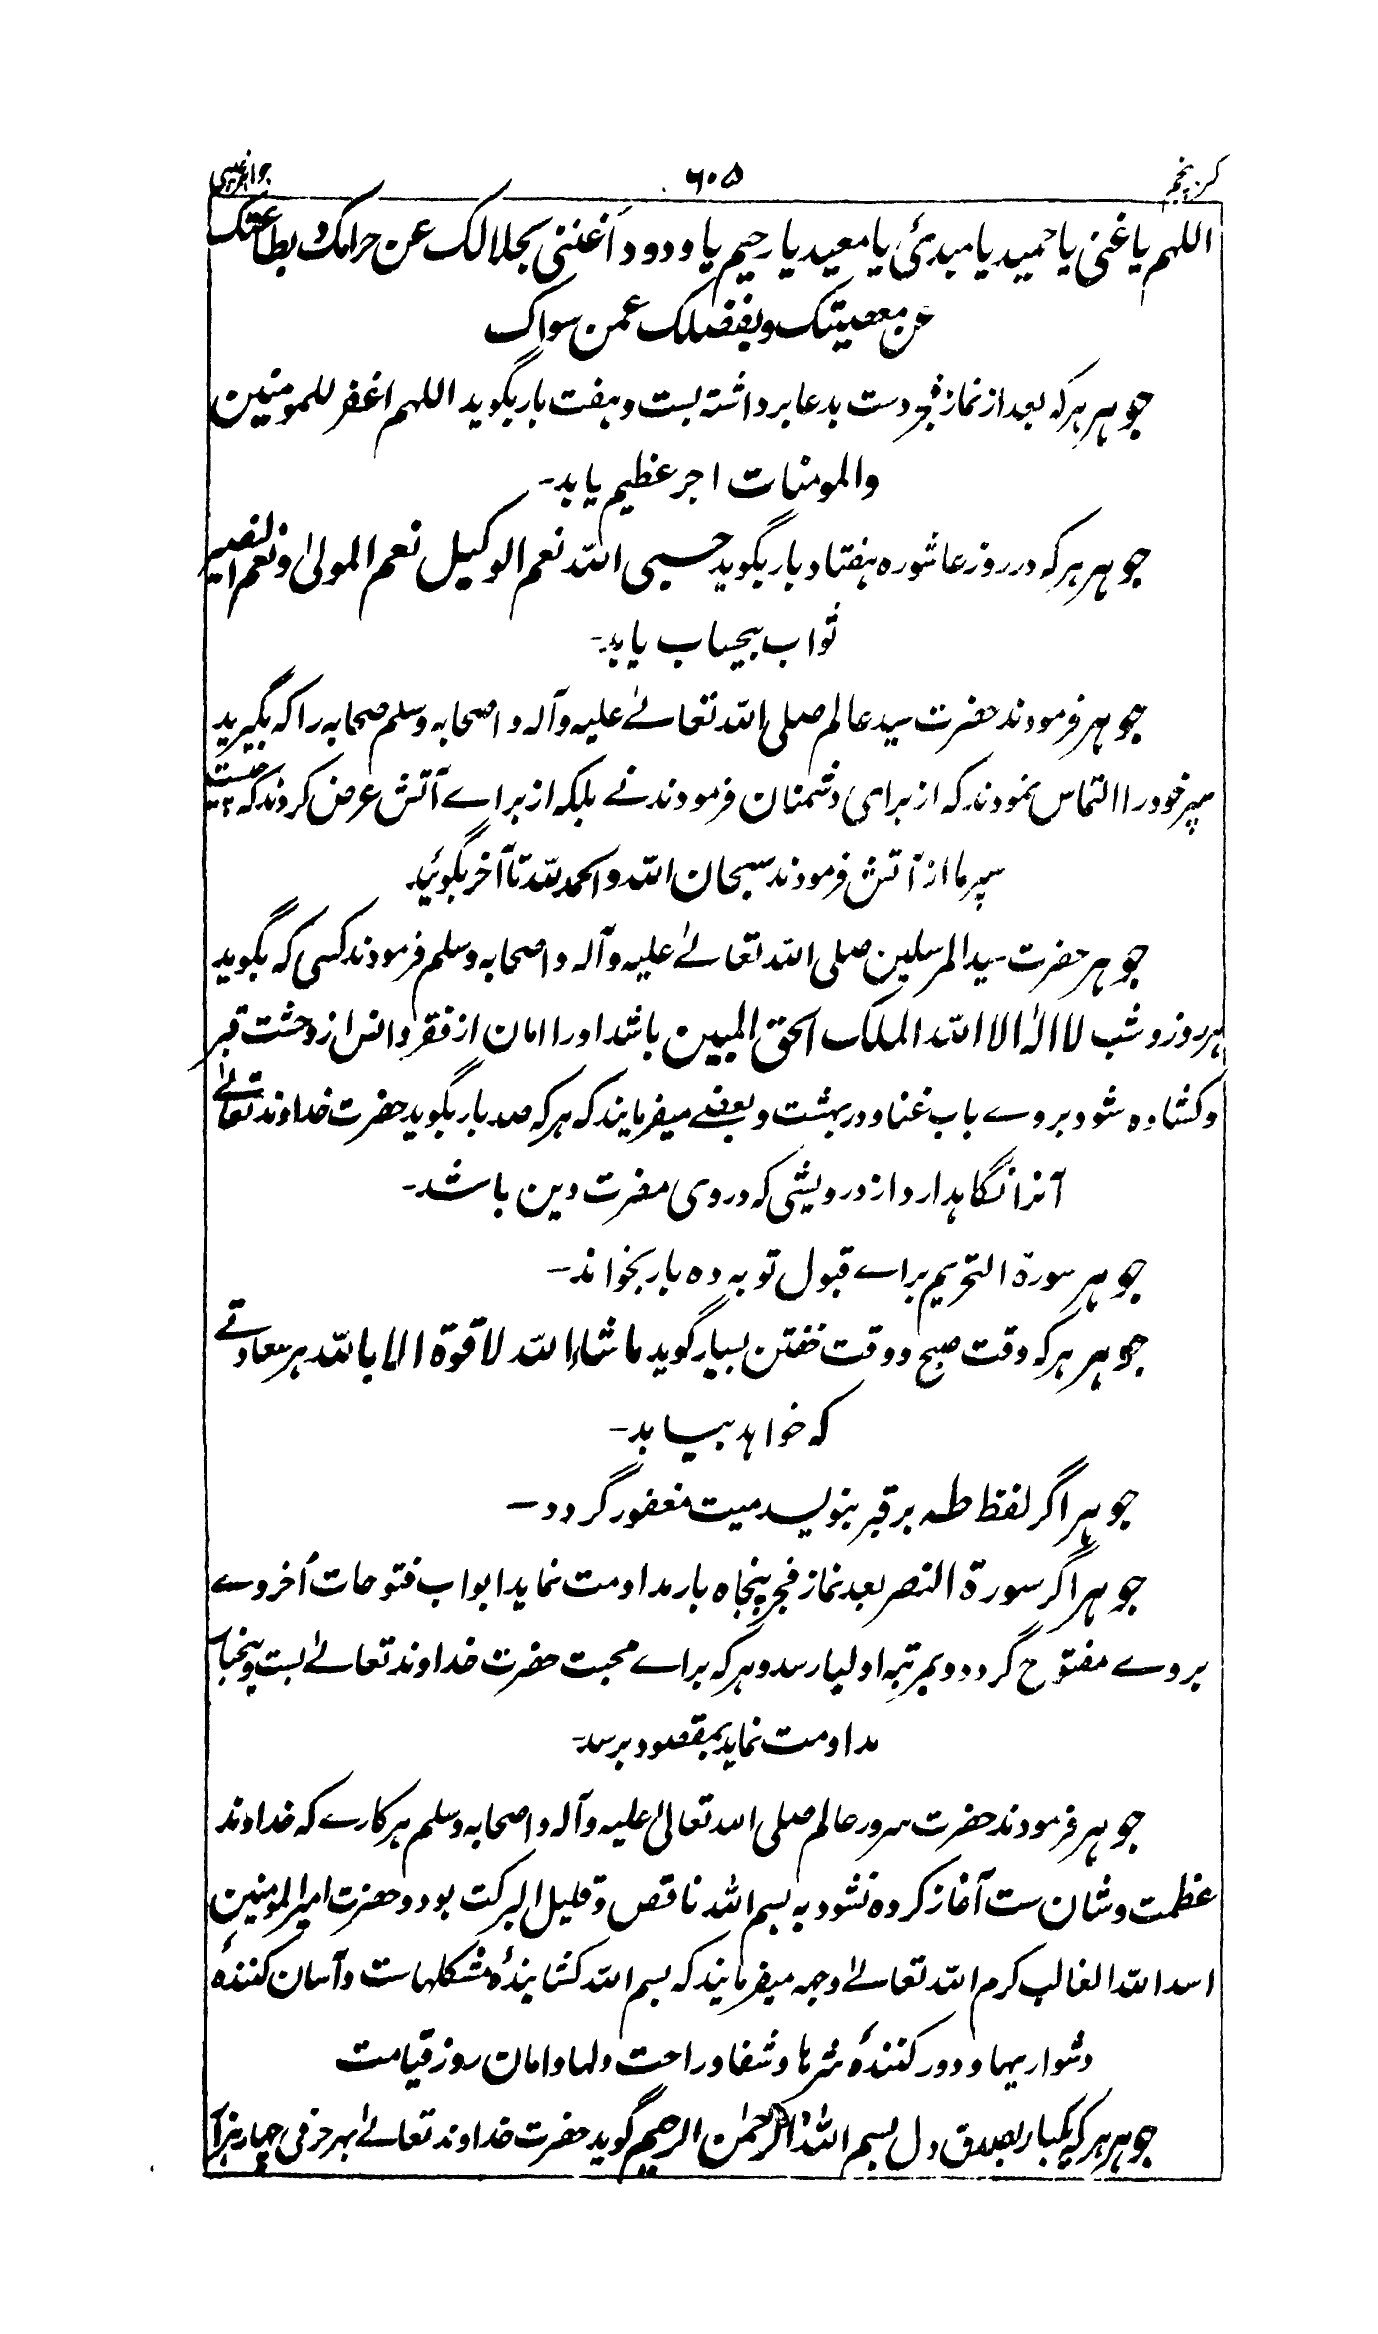 کنز پنجم ۶۰۵ جواهر غیبی
اللهم یا غنی یا حمید یا مبدئ یا معید یا رحیم یا ودود اغننی بجلالک عن حرامک و بطاعتک
عن معصیتک و بفضلک عمن سواک
جوہر ہرکہ بعد از نماز فجر دست بدعا برداشتہ بست و ہفت بار بگوید اللهم اغفر للمومنین
والمومنات اجر عظیم یابد۔
جوہر ہرکہ در روز عاشورہ ہفتاد بار بگوید حسبی اللہ نعم الوکیل نعم المولیٰ و نعم النصیر
ثواب بیحساب یابد۔
جوہر فرمودند حضرت سید عالم صلی اللہ تعالےٰ علیہ وآلہ و اصحابہ وسلم صحابہ را کہ بگیرید
سپر خود را التماس نمودند کہ از برای دشمنان فرمودند نے بلکہ از براے آتش عرض کردند کہ چیست
سپر ما از آتش فرمودند سبحان اللہ والحمد للہ تا آخر بگوئید۔
جوہر حضرت سید المرسلین صلی اللہ تعالےٰ علیہ وآلہ و اصحابہ وسلم فرمودند کسی کہ بگوید
ہر روز و شب لا الہ الا اللہ الملک الحق المبین باشد اورا امان از فقر و انس از وحشت قبر
و کشادہ شود بروے باب غنا و در بہشت و بعضے میفرمایند کہ ہرکہ صد بار بگوید حضرت خداوند تعالےٰ
آنرا نگاہدارد از درویشی کہ دروی مضرت دین باشد۔
جوہر سورۃ التحریم براے قبول توبہ دہ بار بخواند۔
جوہر ہرکہ وقت صبح و وقت خفتن بسیار گوید ما شاء اللہ لا قوۃ الا باللہ ہر سعادتے
کہ خواہد بیابد۔
جوہر اگر لفظ طہ بر قبر بنویسد میت مغفور گردد۔
جوہر اگر سورۃ النصر بعد نماز فجر پنجاہ بار مداومت نماید ابواب فتوحات اُخروے
بروے مفتوح گردد و بمرتبہ اولیا رسد و ہرکہ براے محبت حضرت خداوند تعالےٰ بست و پنجبار
مداومت نماید بمقصود برسد۔
جوہر فرمودند حضرت سرور عالم صلی اللہ تعالیٰ علیہ وآلہ و اصحابہ وسلم ہر کارے کہ خداوند
عظمت و شان ست آغاز کردہ نشود بہ بسم اللہ ناقص و قلیل البرکت بود و حضرت امیر المومنین
اسد اللہ الغالب کرم اللہ تعالےٰ وجہہ میفرمایند کہ بسم اللہ کشایندۂ مشکلہاست و آسان کنندۂ
دشواریہا و دور کنندۂ شرہا و شفا و راحت دلہا و امان روز قیامت
جوہر ہرکہ یکبار بصدق دل بسم اللہ الرحمٰن الرحیم گوید حضرت خداوند تعالےٰ بہر حرفی چہار ہزار